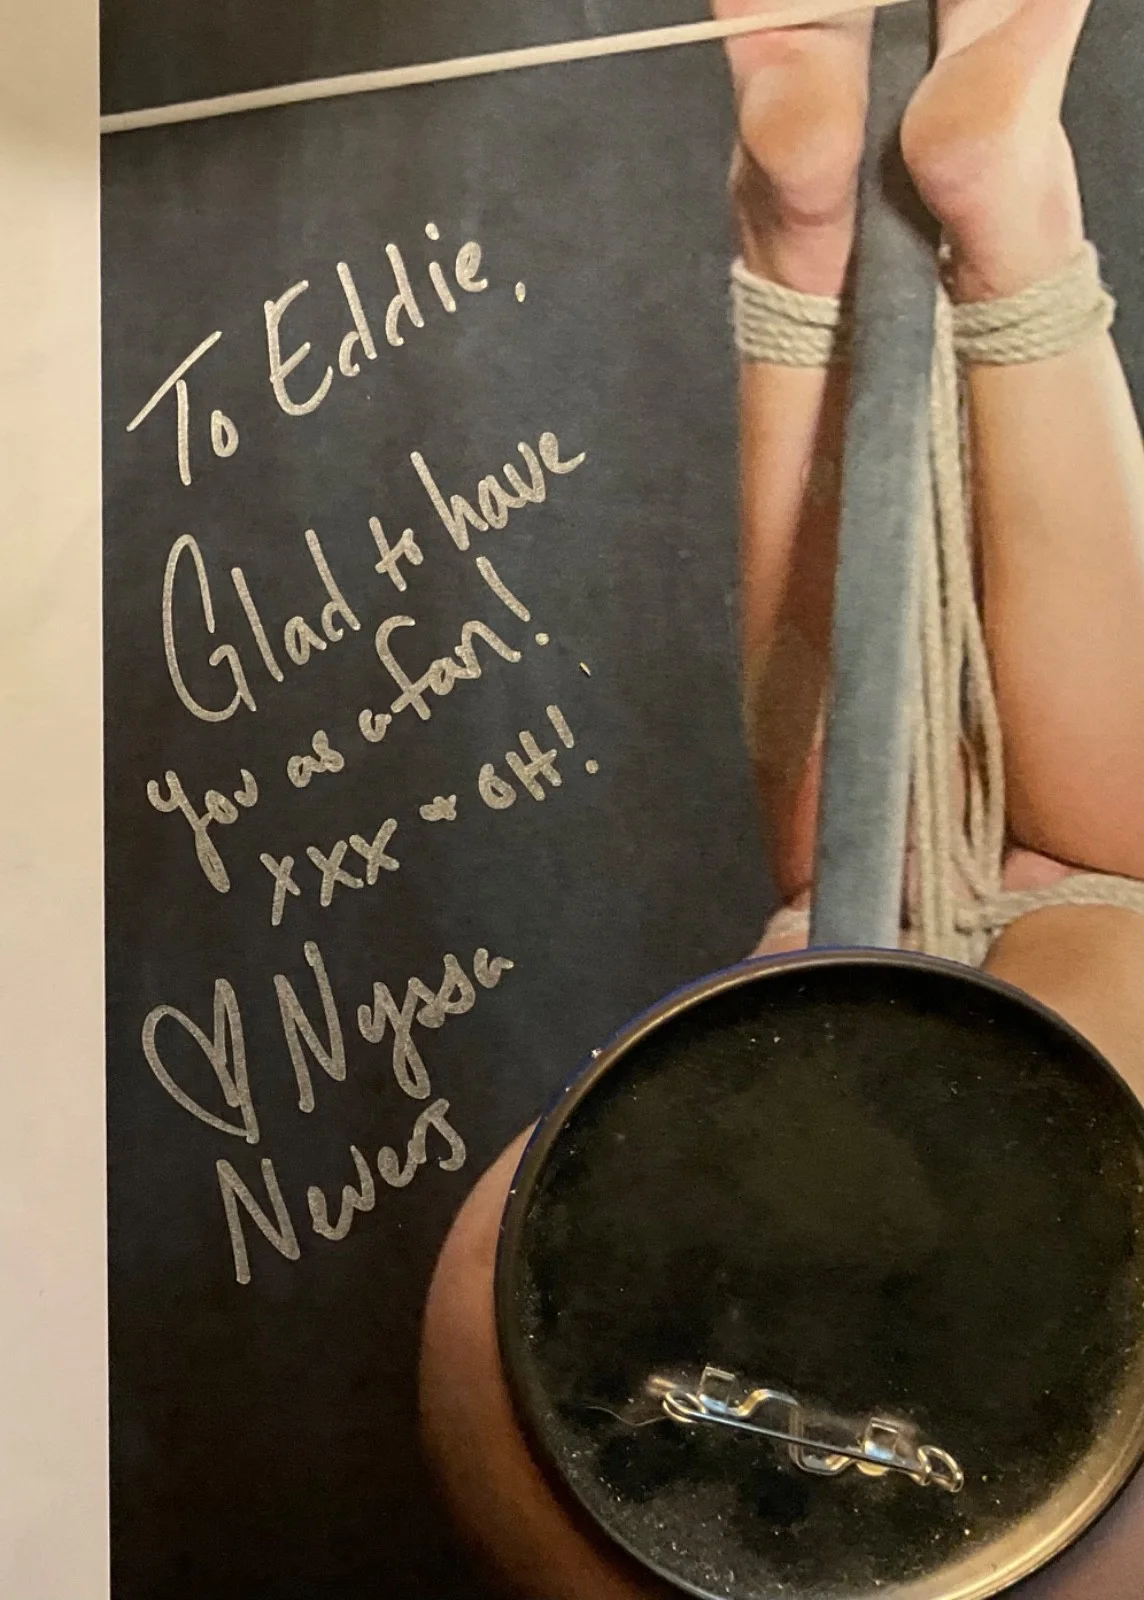 To Eddie,
Glad to have
you as a fan!
xxx + OH!
♡ Nyssa
Nevers